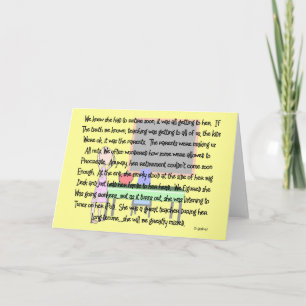 We knew she had to retire soon, it was all getting to her. If
The truth was known, teaching was getting to all of us, the kids
Were ok, it was the parents. The parents were making us
All nuts. We often wondered how some were allowed to
Procreate. Anyway, her retirement couldn't come soon
Enough. At the end, she simply stood at the side of her
Desk and just held her hands to her head. We figured she
Was going bonkers, but as it turns out, she was listening to
Tunes on her iPod. She was a great teacher, during her
Long tenure, she will me greatly missed.